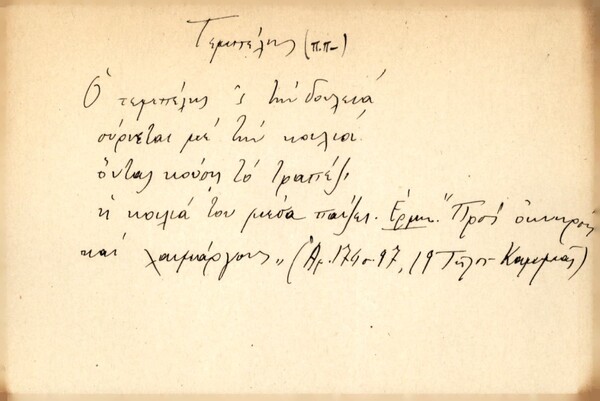 Τεμπέλης (π.π.)
Ὁ τεμπέλης 'ς τὴν δουλειά
σύρνεται μὲ τὴν κοιλιά.
ὄντας κούσῃ τὸ τραπέζι
ἡ κοιλιά του μέσα παίζει. Ἑρμ. "Πρὸς ὀκνηροὺς
καὶ λαιμάργους" (Ἀρ. 174 σ. 97, 19